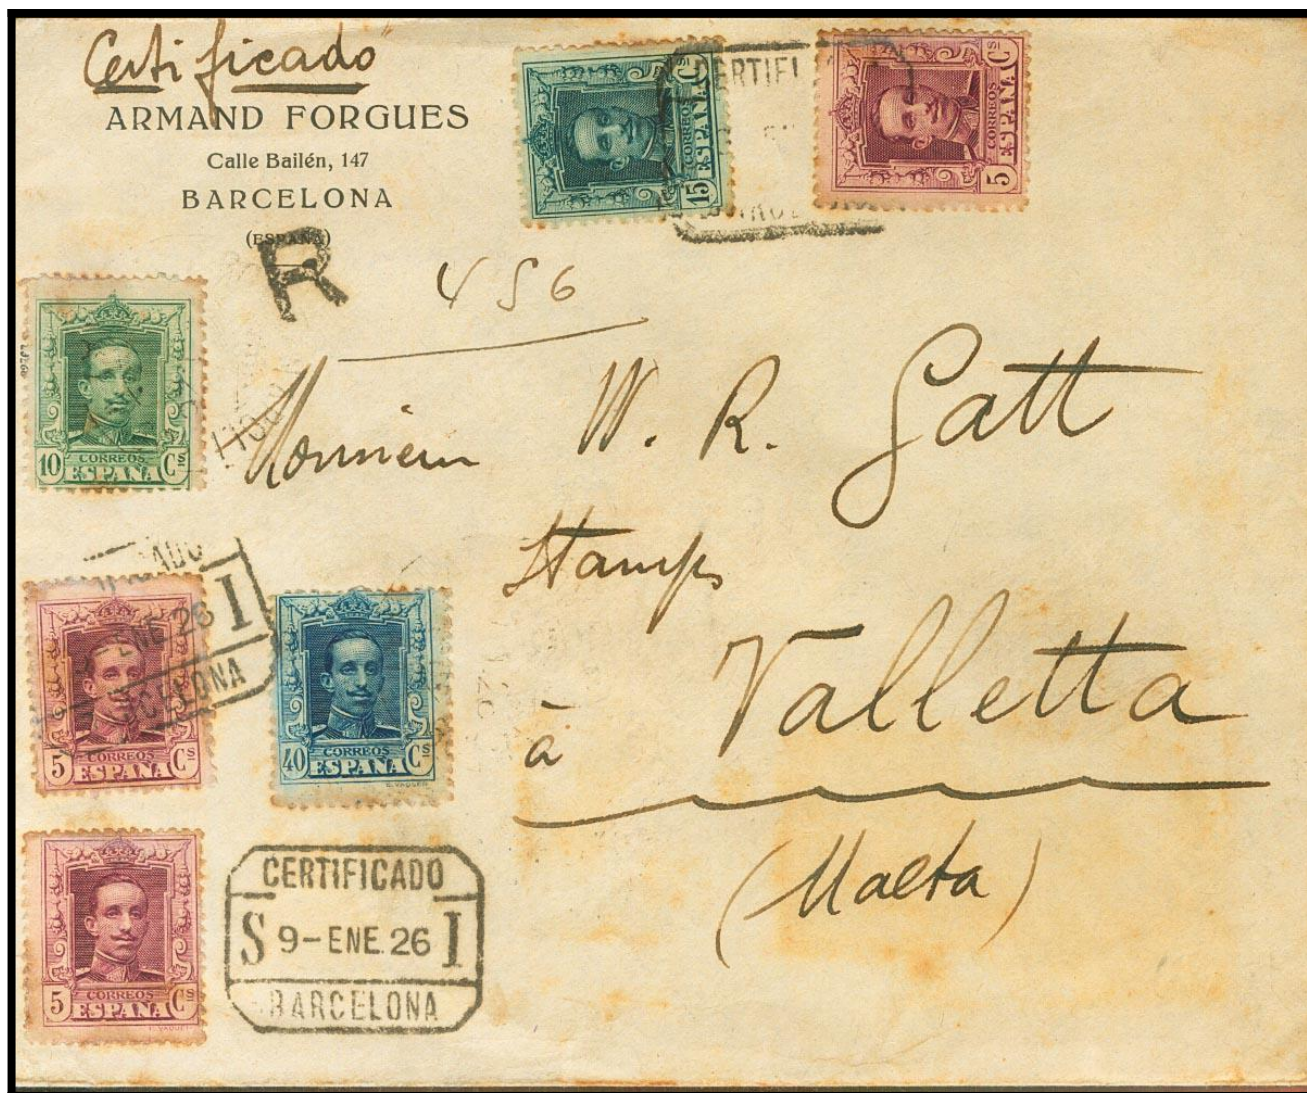 Certificado
ARMAND FORGUES
Calle Bailén, 147
BARCELONA
(ESPAÑA)
R
456
15 CORREOS ESPAÑA Cs
5 CORREOS ESPAÑA Cs
10 CORREOS ESPAÑA Cs
Monsieur W. R. Gatt
Stamps
à Valletta
(Malta)
ENE 26 I
5 CORREOS ESPAÑA Cs
40 CORREOS ESPAÑA Cs
5 CORREOS ESPAÑA Cs
CERTIFICADO
S 9-ENE.26 I
BARCELONA